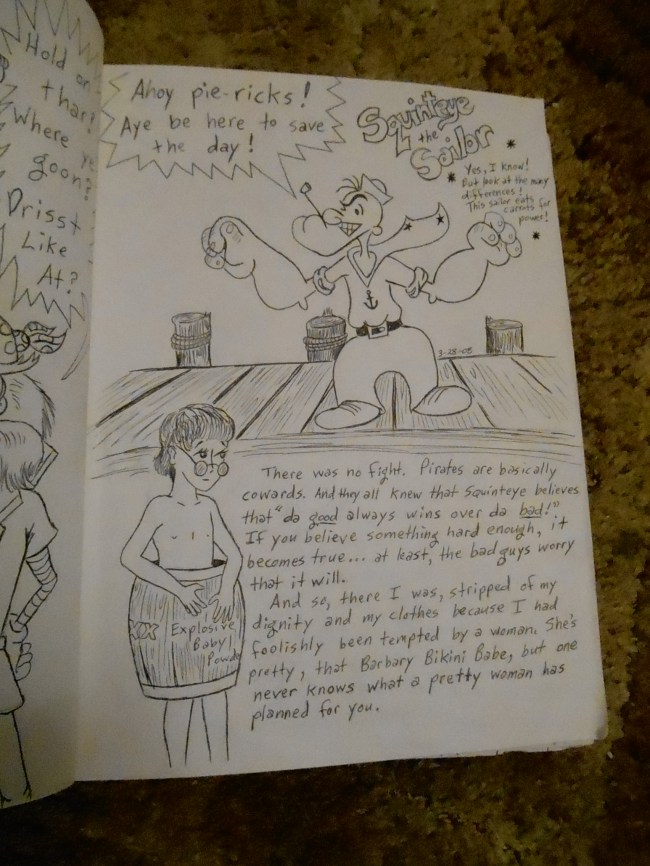 Hold on
thar!
Where ye
goon?
Drisst
Like
At?
Ahoy pie-ricks!
Aye be here to save
the day!
Squinteye
the
Sailor
Yes, I know!
But look at the many
differences!
This sailor eats
carrots for
power!
3-25-05
There was no fight. Pirates are basically
cowards. And they all knew that Squinteye believes
that "da good always wins over da bad!"
If you believe something hard enough, it
becomes true... at least, the bad guys worry
that it will.
And so, there I was, stripped of my
dignity and my clothes because I had
foolishly been tempted by a woman. She's
pretty, that Barbary Bikini Babe, but one
never knows what a pretty woman has
planned for you.
XX Explosive
Baby
Powder